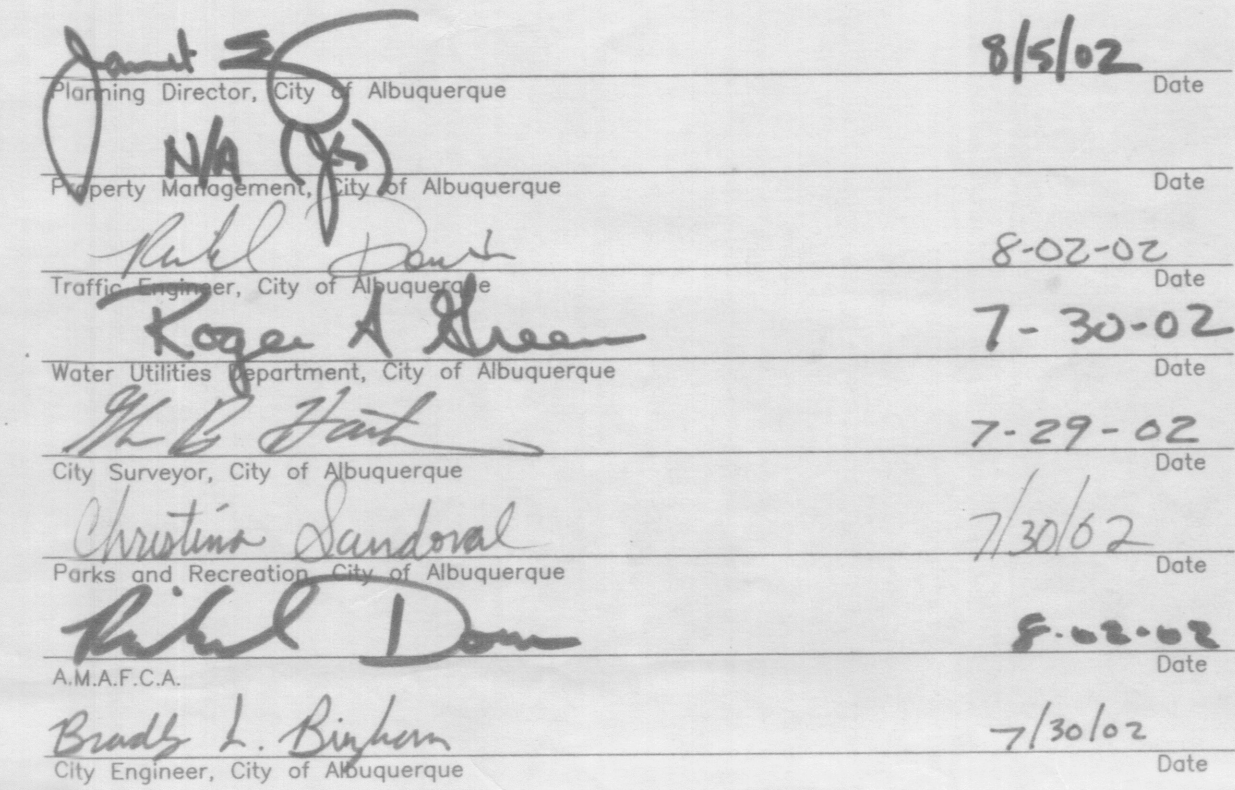 Janet 8/5/02
Planning Director, City of Albuquerque Date
N/A (JS)
Property Management, City of Albuquerque Date
8-02-02
Traffic Engineer, City of Albuquerque Date
Roger A Green 7-30-02
Water Utilities Department, City of Albuquerque Date
7-29-02
City Surveyor, City of Albuquerque Date
Christina Sandoval 7/30/02
Parks and Recreation, City of Albuquerque Date
8-02-02
A.M.A.F.C.A. Date
Bradly L. Bingham 7/30/02
City Engineer, City of Albuquerque Date